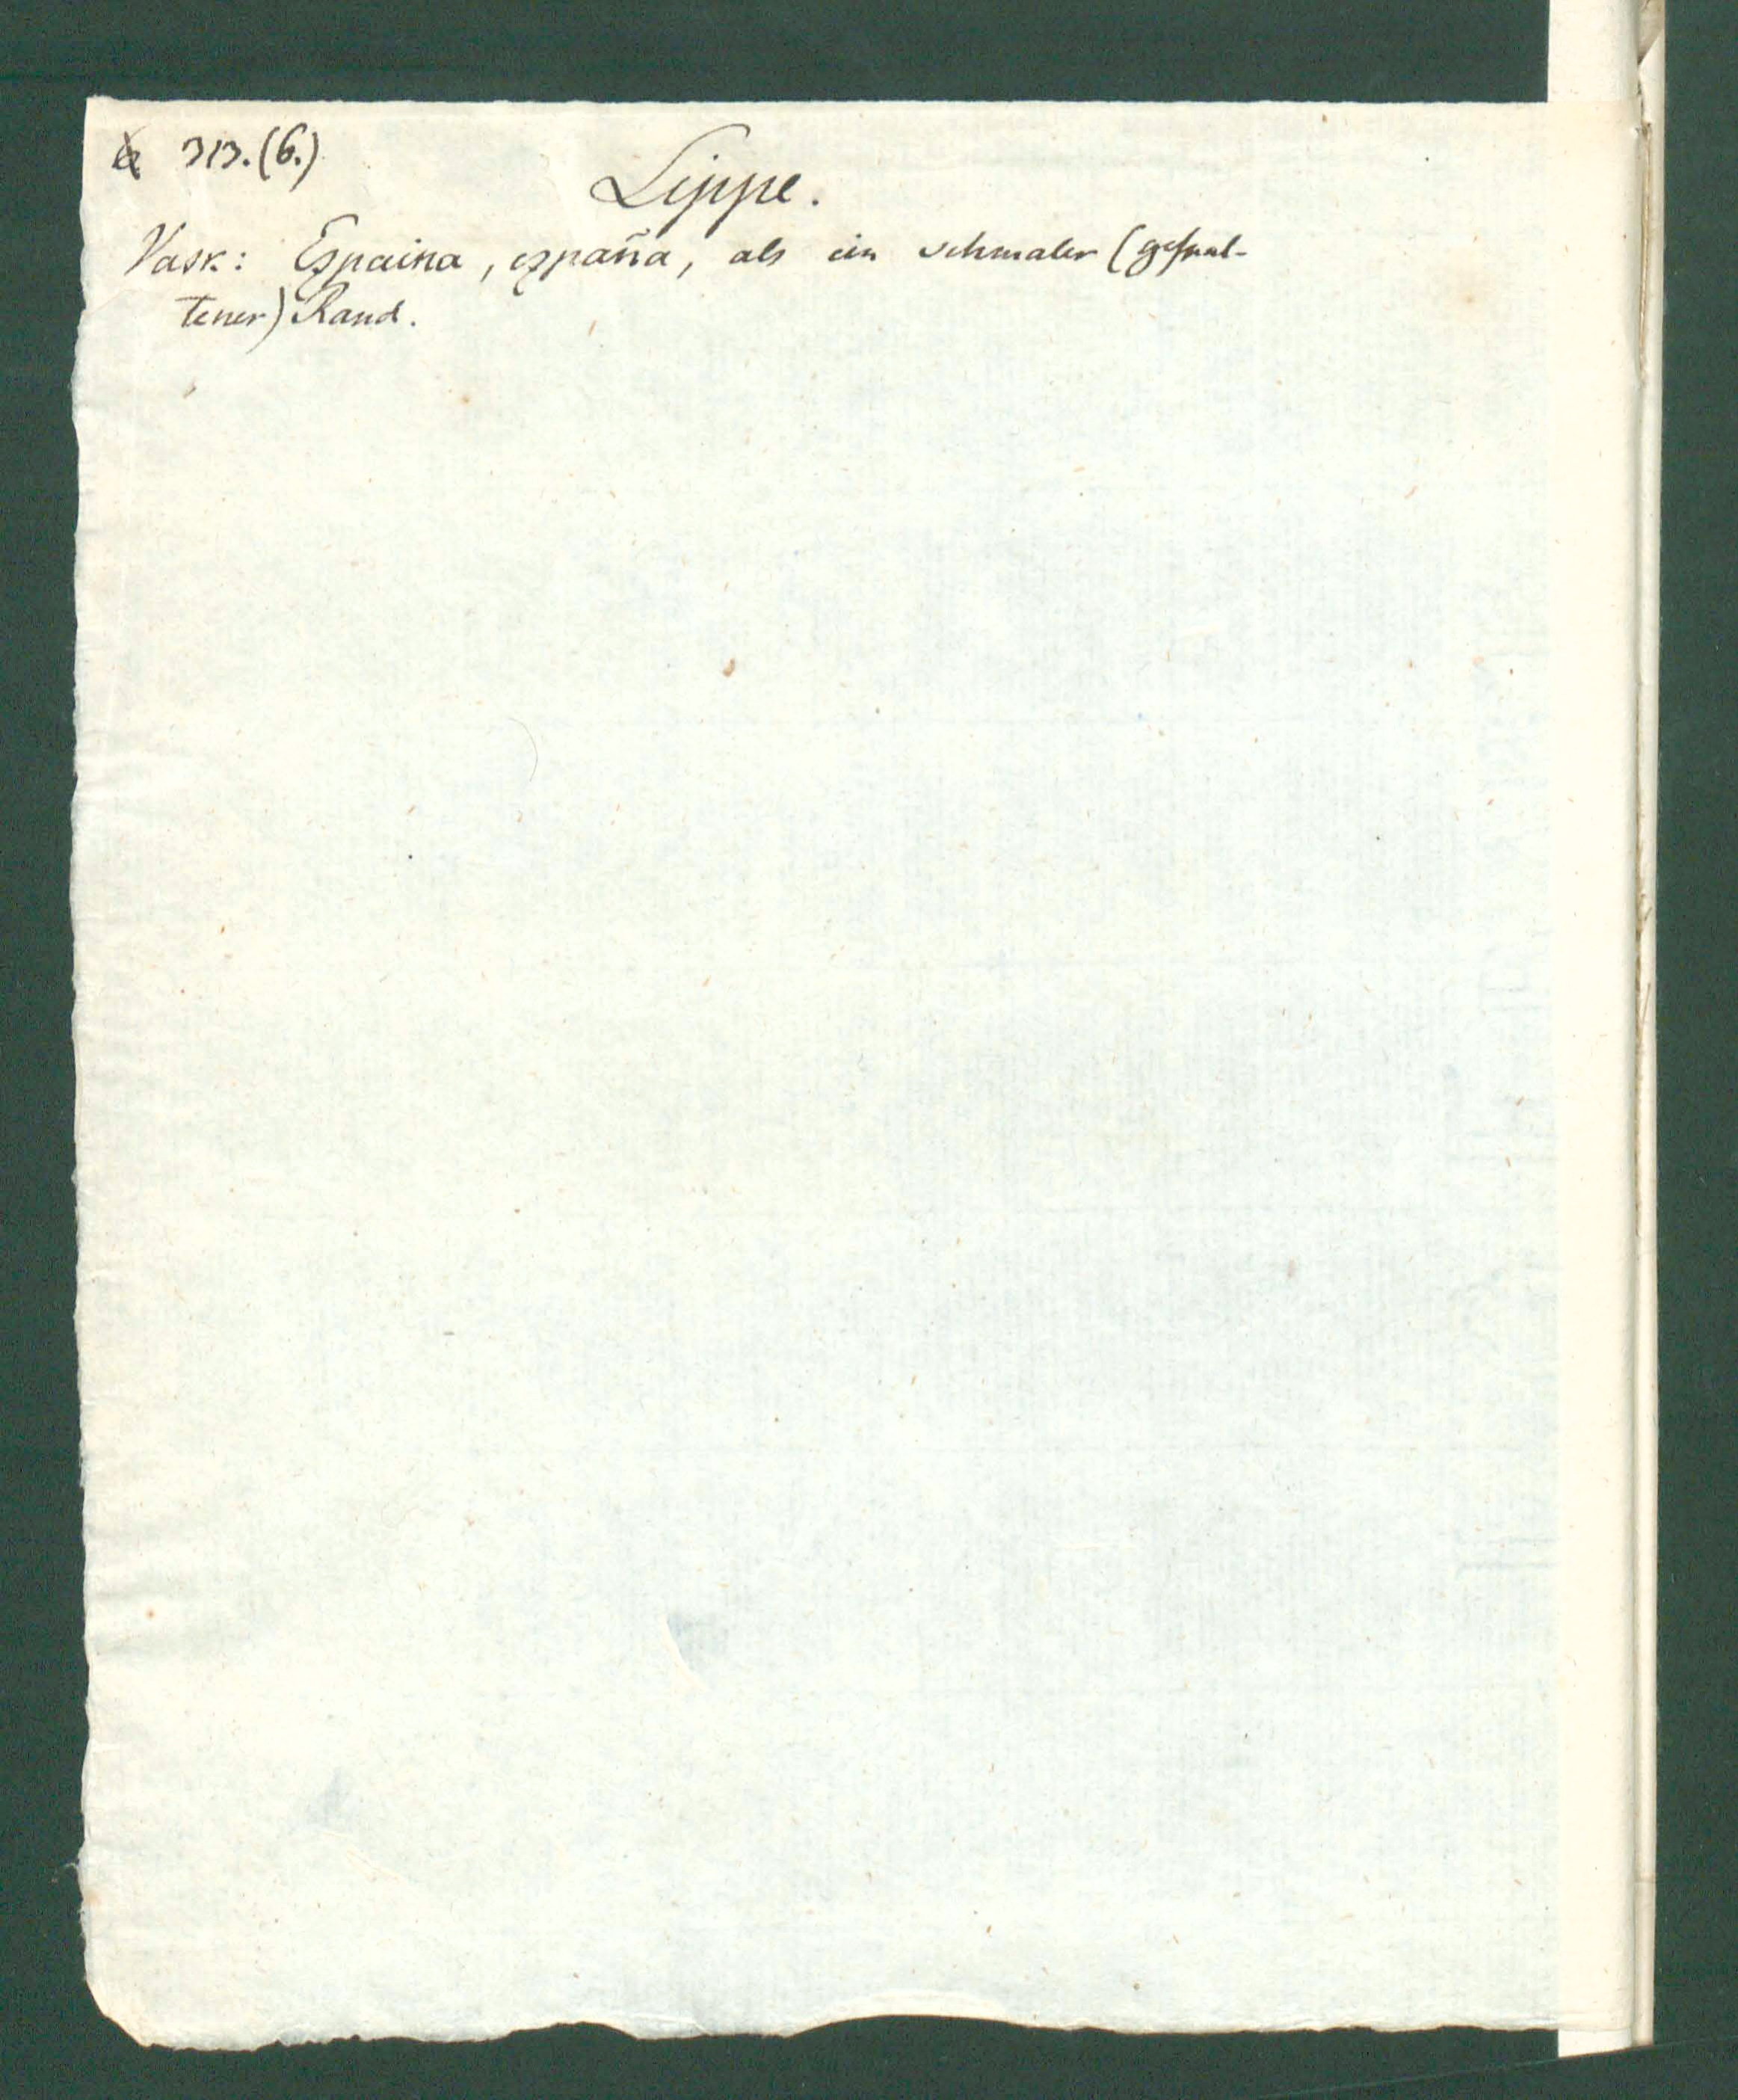 313. (6.)
Lippe.
Vask: Ezpaina, ezpaña, als ein schmaler (gespal-
tener) Rand.